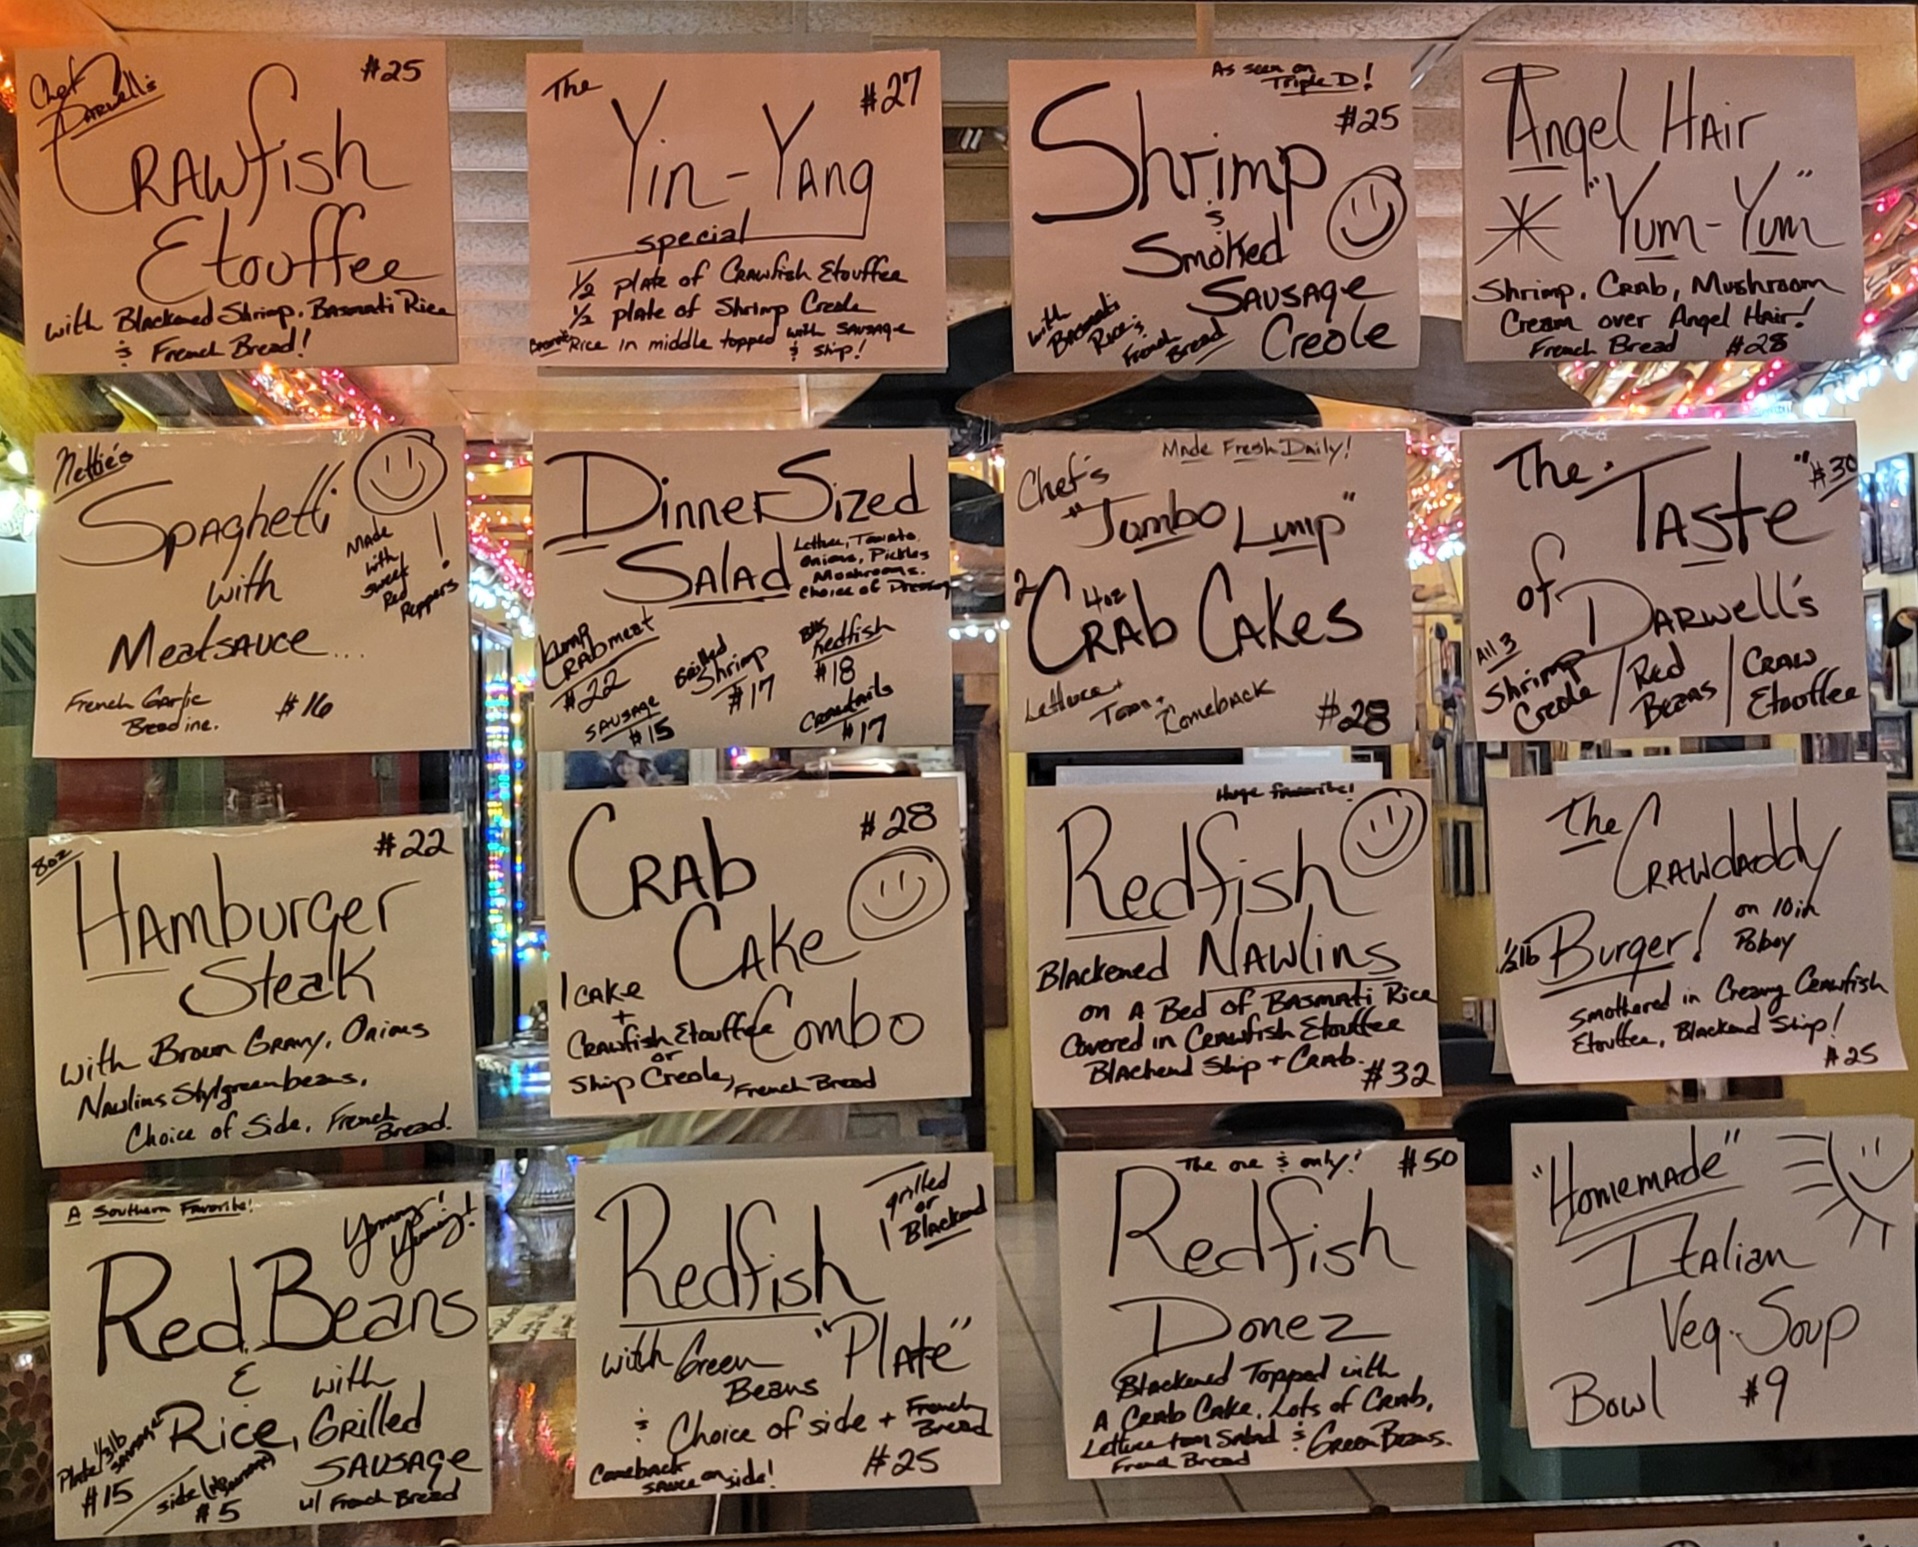 Chef Darwell's
#25
Crawfish
Etouffee
with Blackened Shrimp, Basmati Rice
& French Bread!
The
#27
Yin-Yang
special
1/2 plate of Crawfish Etouffee
1/2 plate of Shrimp Creole
Rice in middle topped with Sausage
& Shrp!
As seen on
Triple D!
#25
Shrimp
&
Smoked
Sausage
Creole
with
Basmati
Rice &
French Bread
Angel Hair
"Yum-Yum"
Shrimp, Crab, Mushroom
Cream over Angel Hair!
French Bread #28
Nettie's
Spaghetti
with
Meatsauce...
Made
with
sweet
Red
Peppers!
French Garlic
Bread inc. #16
Dinner Sized
Salad
Lettuce, Tomato,
Onions, Pickles
Mushrooms.
Choice of Dressing
Lump
Crabmeat
#22
Sausage
#15
Grilled
Shrimp
#17
Blk
Redfish
#18
Crawtails
#17
Made Fresh Daily!
Chef's
"Jumbo Lump"
2 4oz
Crab Cakes
Lettuce +
Tom. + Comeback
#28
The "Taste"
#30
of
Darwell's
All 3
Shrimp Creole / Red Beans / Craw Etouffee
8oz
#22
Hamburger
Steak
with Brown Gravy, Onions
Nawlins Styl green beans,
Choice of Side, French
Bread.
#28
Crab
Cake
Combo
1 cake
+
Crawfish Etouffee
or
Shrp Creole, French Bread
Huge favorite!
Redfish
Blackened Nawlins
on A Bed of Basmati Rice
Covered in Crawfish Etouffee
Blackend Shrp + Crab. #32
The
Crawdaddy
1/2 lb Burger!
on 10in
Poboy
Smothered in Creamy Crawfish
Etouffee, Blackend Shrp!
#25
A Southern Favorite!
Yummy!
Yummy!
Red Beans
&
Rice,
with
Grilled
Sausage
w/ French Bread
Plate 1/3 lb
sausage
#15
side (no sausage)
#5
grilled
or
Blackend
Redfish
"Plate"
with Green
Beans
& Choice of side + French
Bread
Comeback
sauce on side!
#25
The one & only!
#50
Redfish
Donez
Blackened Topped with
A Crab Cake, Lots of Crab,
Lettuce + tom Salad & Green Beans.
French Bread
"Homemade"
Italian
Veg. Soup
Bowl #9